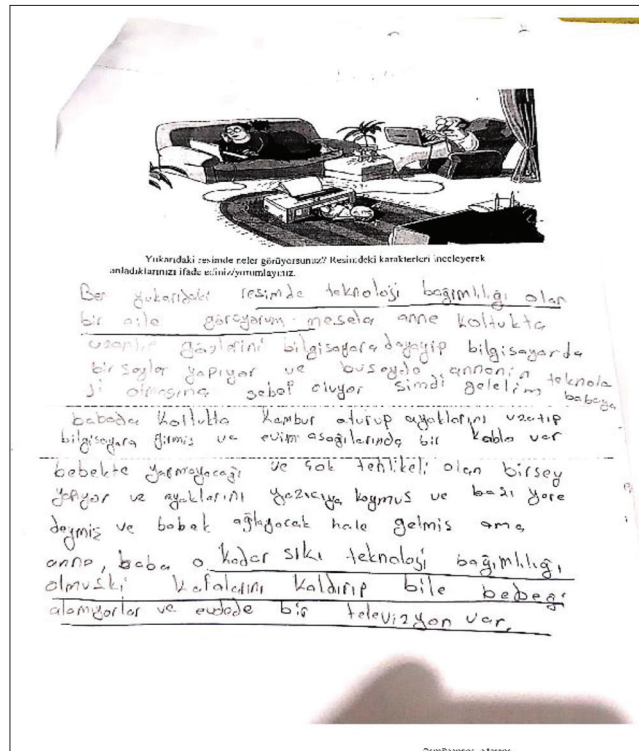 Yukarıdaki resimde neler görüyorsunuz? Resimdeki karakterleri inceleyerek
anladıklarınızı ifade ediniz/yorumlayınız.
Ben yukarıdaki resimde teknoloji bağımlılığı olan
bir aile görüyorum mesela anne koltukta
uzanıp gözlerini bilgisayara dayayıp bilgisayarda
bir şeyler yapıyor ve buseyde annenin teknolo
ji olmasına sebef oluyor simdi gelelim babaya
babada koltukta kambur oturup ayaklarını uzatıp
bilgisayara girmis ve evin asağılarında bir kablo var
bebekte yapmayacağı ve çok tehlikeli olan birsey
yapıyor ve ayaklarını yazıcıya koymus ve bazı yere
deymis ve bebek ağlayacak hale gelmis ama
anne, baba o kadar sıkı teknoloji bağımlılığı
olmuski kafalarını kaldırıp bile bebeği
alamıyorlar ve evdede bir televizyon var.